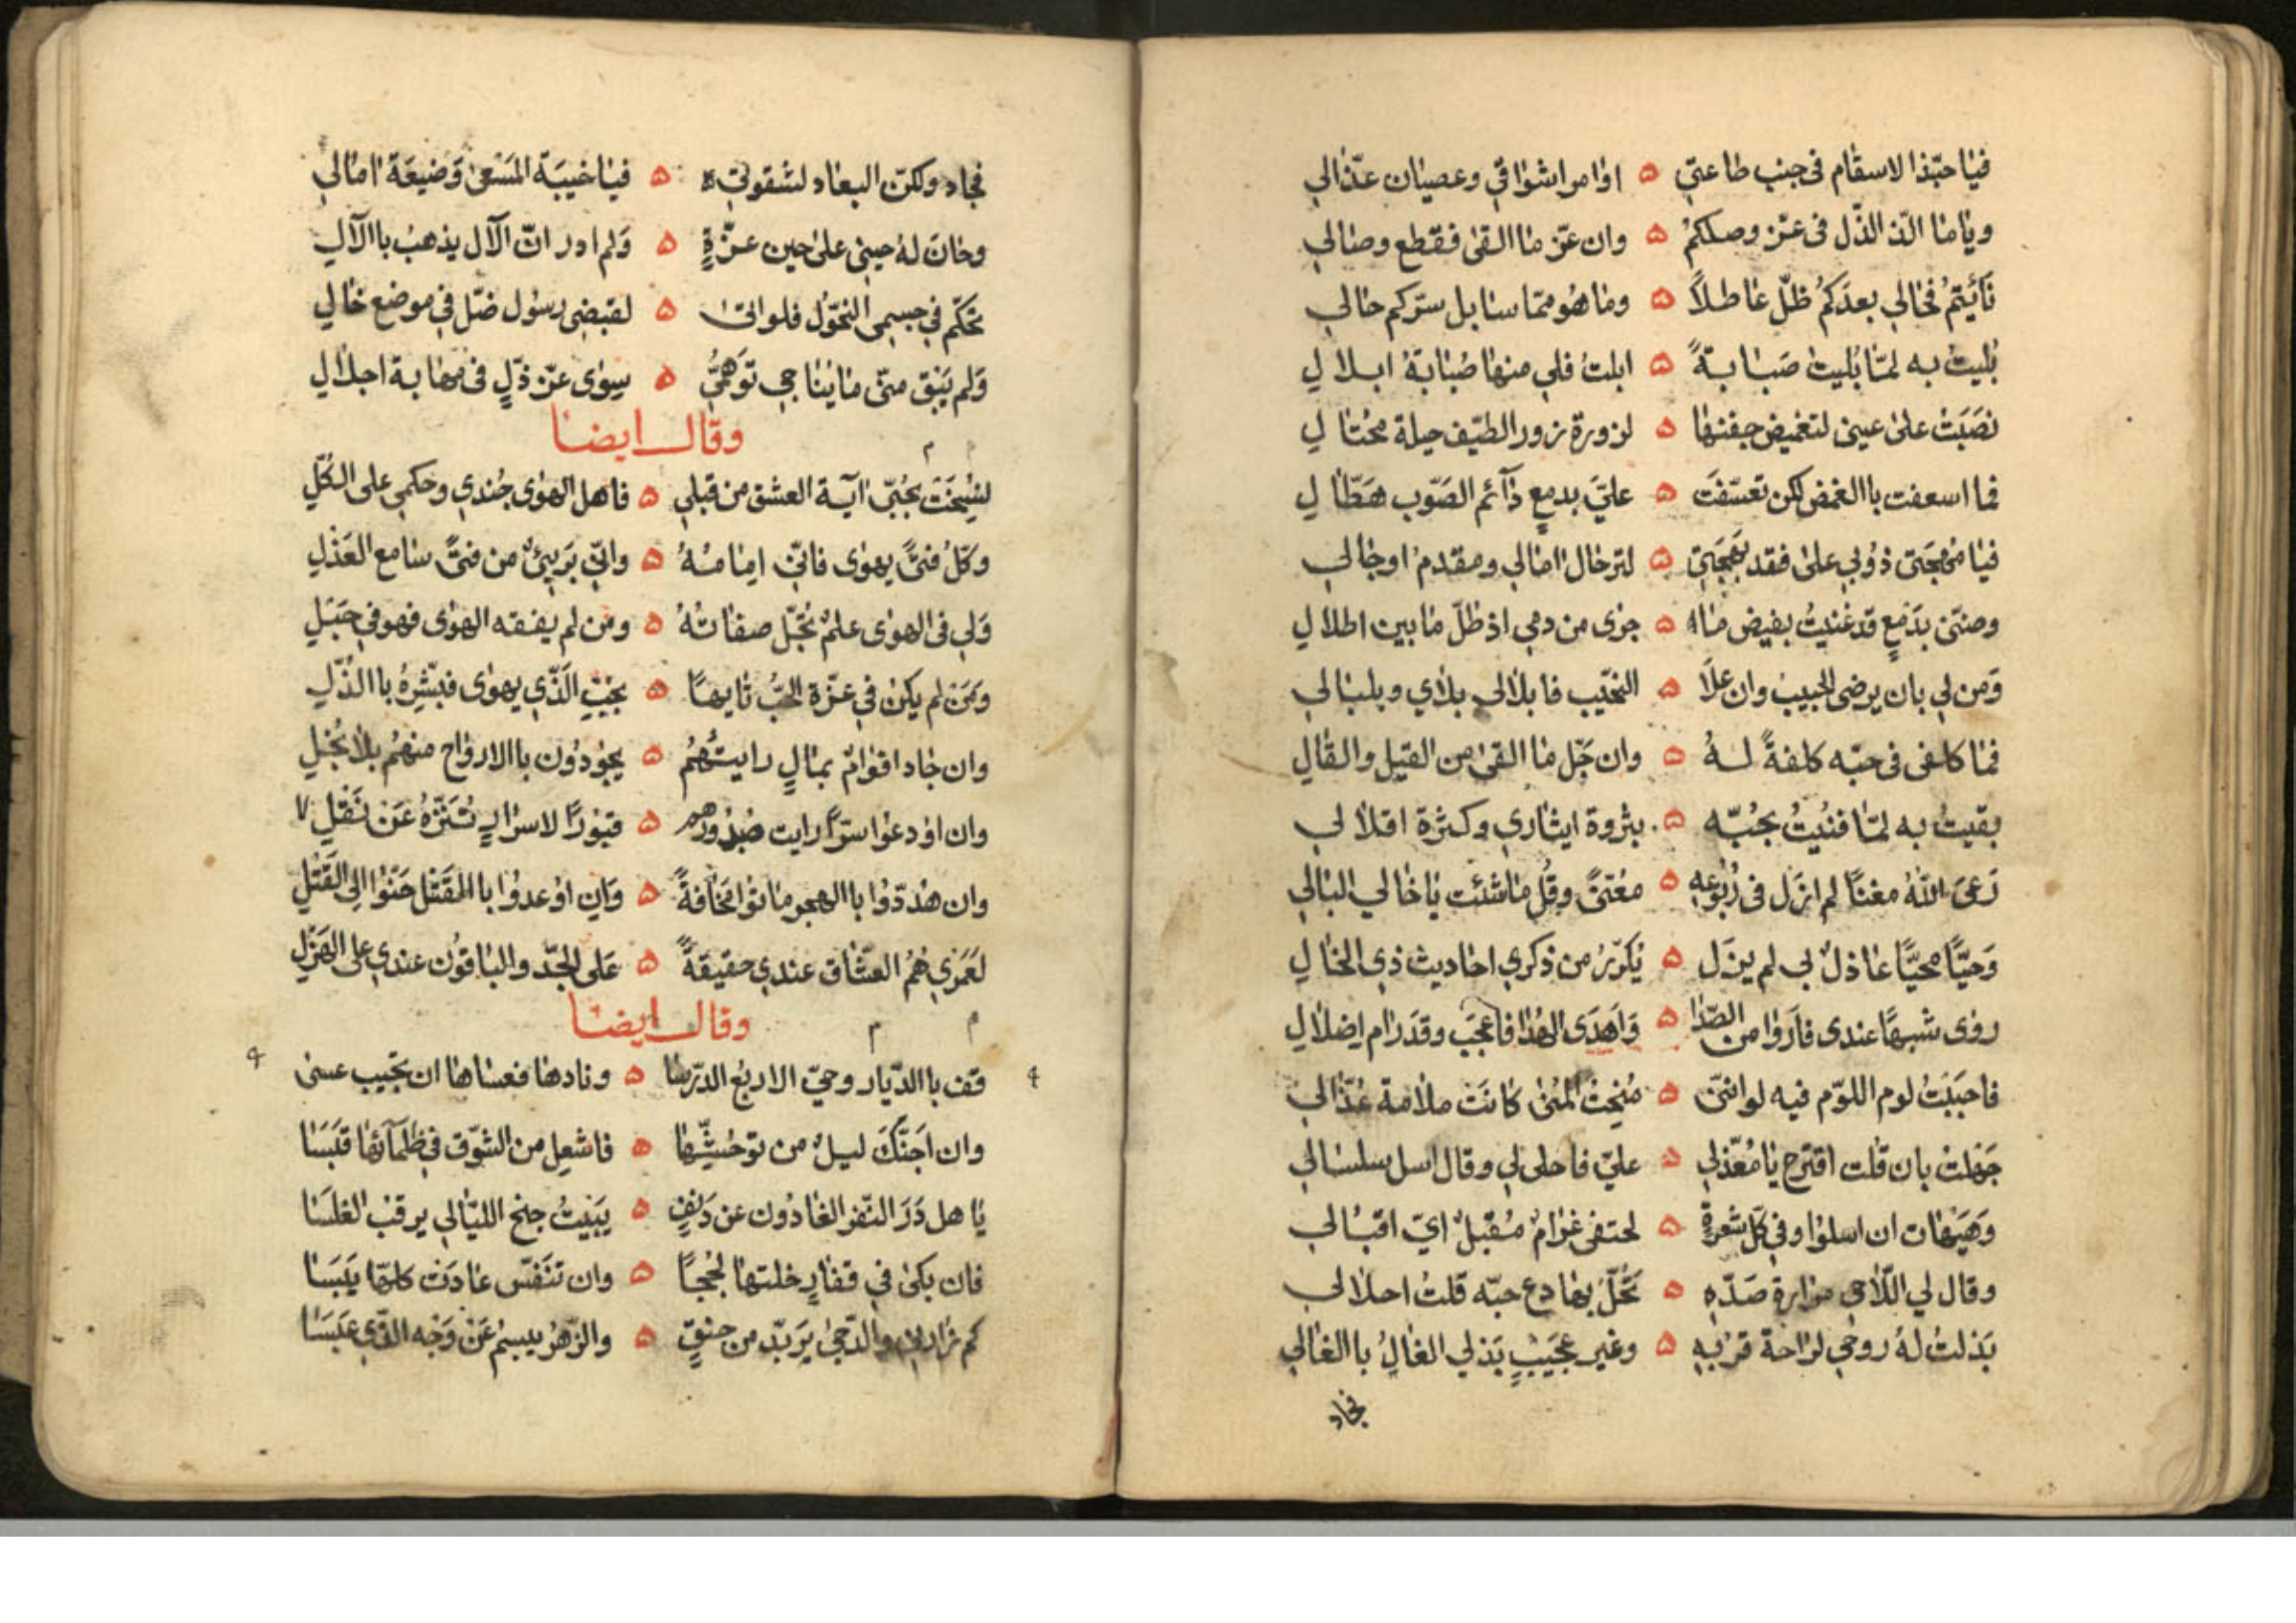 فيا حبّذا الاسقام فى جنب طاعتي ۵ اوامر اشواقي وعصيان عذّالي
وياما الذّ الذّل فى عزّ وصلكمُ ۵ وان عزّ ما القى فقطع وصالي
نَأَيتمُ فحالي بعدَكمُ ظلّ عاطلاً ۵ وما هُو ممّا سا بل سرّكم حالي
بُليت به لمّا بُليت صَبابةً ۵ ابلت فلي منها صُبابة ابلالِ
نصَبَتْ على عيني لتغميض جفنها ۵ لزورة زور الطيّف حيلة محتالِ
فما اسعفت باالغمض لكن تعسّفَت ۵ عليّ بدمعٍ دآئم الصَوّب هَطّالِ
فيا مهجَتى ذُوبي على فقد بَهجَتي ۵ لترحال امالي ومقدم اوجالي
وضنّى بدَمعٍ قد غنيتُ بفيض ما ۵ جرى من دمي اذ ظلّ ما بين اطلالِ
وَمن لي بان يرضى الحبيب وان علَا ۵ النحيّب فابلالي بلاي وبلبالي
فما كلفى فى حبّه كلفةً لهُ ۵ وان جَلّ ما القى من القيل والقالِ
بقيتُ به لمّا فنيتُ بحُبّه ۵ بثروة ايثاري وكثرة اقلالي
رَعىَ اللهُ مغنًا لم ازَل فى رُبُوعِه ۵ معَنّىً وقُل ما شئت يا خالي البالي
وَحيًّا محيًّا عاذلٌ لي لم يزَل ۵ يُكرّرُ من ذكري احاديث ذي الخالِ
روى شبهًا عندى فاَروا من الصّدا ۵ وَاَهدَى الهُدا فاعجَب وقدَ رام اضلالِ
فاحبَبتُ لوم اللوّم فيه لو انّنى ۵ مُنِحتُ المُنى كانَت ملامة عُذّالي
جَهلت بان قلت اقترح يا مُعّذبي ۵ عليّ فاحلى لي وقال اسل سلسالي
وَهَيَهات ان اسلوا وفي كلّ شعرةٍ ۵ لحتفى غرامٌ مُقبلٌ ايّ اقبالي
وقال لي اللّاحى مرارة صَدّهِ ۵ تَحَلّ بها دع حبّه قلتُ احلالي
بَذلتُ لهُ روحي لراحة قربهِ ۵ وغير عَجيَبٍ بَذلي الغالِ باالغالي
فجاد
فجاد ولكنّ البعاد لشقوتي ۵ فيا خيبَة المَسَعى وَضيعَة امالي
وحانَ لهُ حيني على حين عزّةٍ ۵ وَلم ادر انّ الآل يذهبُ باالآلِ
تحكّم في جسمى النحّول فلو اتى ۵ لقبضى رسُول ضّل في موضع خالي
وَلم يَبَق منّى ما يُناجي تَوَهّميُّ ۵ سِوى عزّ ذلٍّ فى مهابة اجلالِ
وقال ايضا
لنسِخَتْ بحُبّى اية العشق من قبلي ۵ فاهل الهوى جُندي وحكمى على الكُلِّ
وكلُ فتىًّ يهوى فانّى امامهُ ۵ وانّي بَريئٌ من فتىً سامع العَذلِ
وَلي فى الهوى علمٌ تجلّ صفاتهُ ۵ ومَن لم يفقه الهوى فهو في جَهلِ
وَمَن لم يكن في عزّة الحُبّ تايهًا ۵ بحبِّ الَذّي يهوى فبَشّرهُ باالذّلِ
وان جاد اقوامٌ بمالٍ رايتَهُمُ ۵ يجُودُون باالارواح منهُم بلا بُخلِ
وان اودعوا سرًّا رايت صُدُورهم ۵ قبُورًا لاسرارٍ تُنَزّهُ عَن نَقلِ ٧
وان هُدّدوُا باالهجر ماتوُا مخافةً ۵ وَاِن اوُعدوُا باالقَتل حَنّوُا الى القَتلِ
لعَمَري هُمُ العشّاق عندي حقيقةً ۵ عَلى الجِدّ والباقوُن عندي على الهَزلِ
وقال ايضا
قف باالدّيار وحيّ الاربُع الدرّسا ۵ ونادها فعساها ان تجيب عسى
وان اَجَنَّكَ ليلٌ من توحُشّها ۵ فاشعل من الشوّق في ظَلمآئها قَبَسَا
يا هل دَرَ النّفر الغادُون عن دَنِفٍ ۵ يَبيتُ جنح الليّالي يرقبُ الغلَسَا
فان بكى في قفارٍ خلتها لججاً ۵ وان تنَفّس عادَت كلهّا يَبَسَا
كم زارني والدّجى يَربدّ من حنقٍ ۵ والزّهرُ يبسمُ عَن وَجه الذّى عَبَسَا